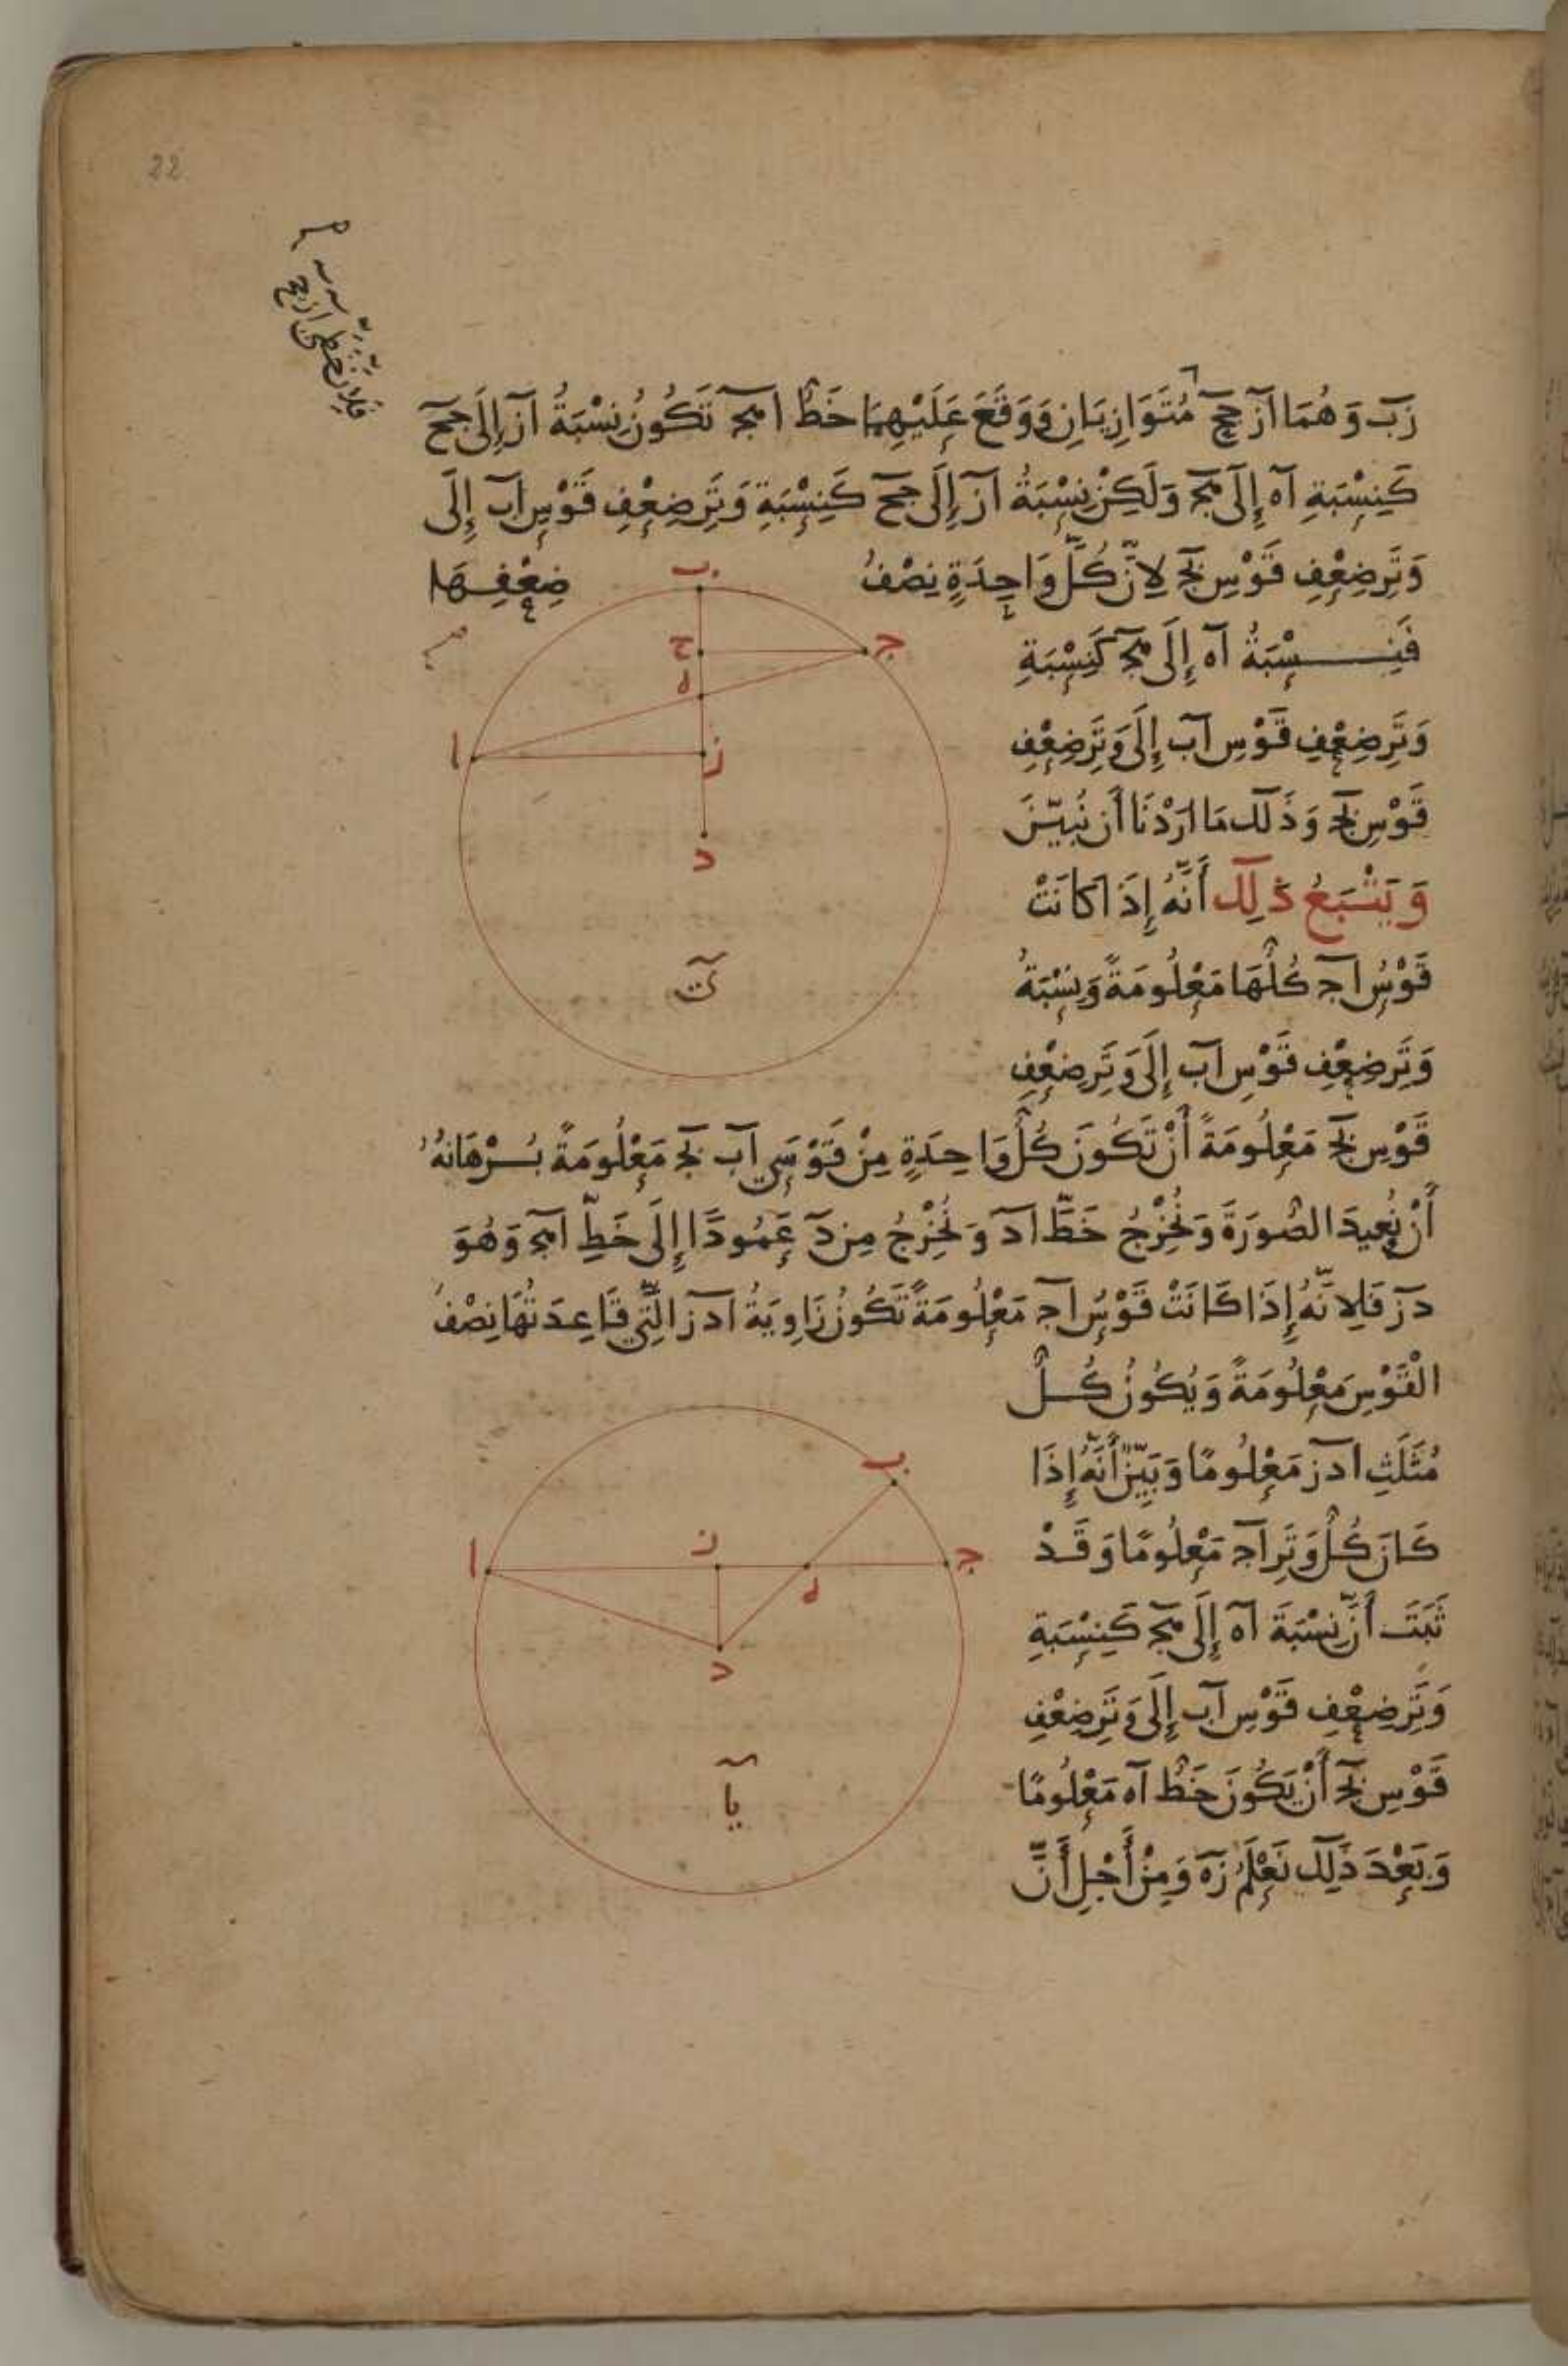 22
فلان خطي ا ز ج ح
زب وهما از جح مُتَوَازِيَانِ وَوَقَعَ عَلَيْهِمَا خَطُّ اهج تَكُونُ نِسْبَةُ از إِلَى جح
كَنِسْبَةِ اه إِلَى هج وَلَكِنْ نِسْبَةُ از إِلَى جح كَنِسْبَةِ وَتَرِ ضِعْفِ قَوْسِ اب إِلَى
وَتَرِ ضِعْفِ قَوْسِ بج لِأَنَّ كُلَّ وَاحِدَةٍ نِصْفُ ضِعْفِهَا
فَنِسْبَةُ اه إِلَى هج كَنِسْبَةِ
وَتَرِ ضِعْفِ قَوْسِ اب إِلَى وَتَرِ ضِعْفِ
قَوْسِ بج وَذَلِكَ مَا ارَدْنَا أَن نُبَيِّنَ
وَيَتْبَعُ ذَلِكَ أَنَّهُ إِذَا كَانَتْ
قَوْسُ اج كُلُّهَا مَعْلُومَةً وَنِسْبَةُ
وَتَرِ ضِعْفِ قَوْسِ اب إِلَى وَتَرِ ضِعْفِ
قَوْسِ بج مَعْلُومَةً أَنْ تَكُونَ كُلُّ وَاحِدَةٍ مِنْ قَوْسَيِ اب بج مَعْلُومَةً بُرْهَانُهُ
أَنْ نُعِيدَ الصُّورَةَ وَنُخْرِجُ خَطَّ اد وَنُخْرِجُ مِن د عَمُودًا إِلَى خَطِّ اهج وَهُوَ
دز فَلِانَّهُ إِذَا كَانَتْ قَوْسُ اج مَعْلُومَةً تَكُونُ زَاوِيَةُ ادز الَّتِي قَاعِدَتُهَا نِصْفُ
الْقَوْسِ مَعْلُومَةً وَيَكُونُ كُلُّ
مُثَلَّثِ ادز مَعْلُومًا وَبَيِّنٌ أَنَّهُ إِذَا
كَانَ كُلُّ وَتَرِ اج مَعْلُومًا وَقَدْ
ثَبَتَ أَنَّ نِسْبَةَ اه إِلَى هج كَنِسْبَةِ
وَتَرِ ضِعْفِ قَوْسِ اب إِلَى وَتَرِ ضِعْفِ
قَوْسِ بج أَنْ يَكُونَ خَطُّ اه مَعْلُومًا
وَبَعْدَ ذَلِكَ نَعْلَمُ زه وَمِنْ أَجْلِ أَنَّ
ب
ج
ح
ه
ا
ز
د
ي
ب
ا
ز
ه
ج
د
يا